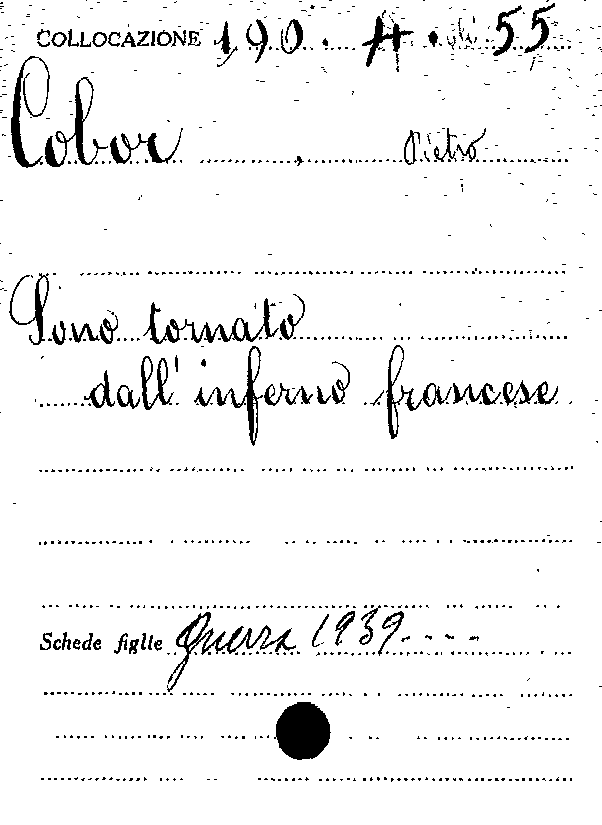 COLLOCAZIONE 190. H. 55
Cobor, Pietro
Sono tornato
dall' inferno francese
Schede figlie Guerra 1939----